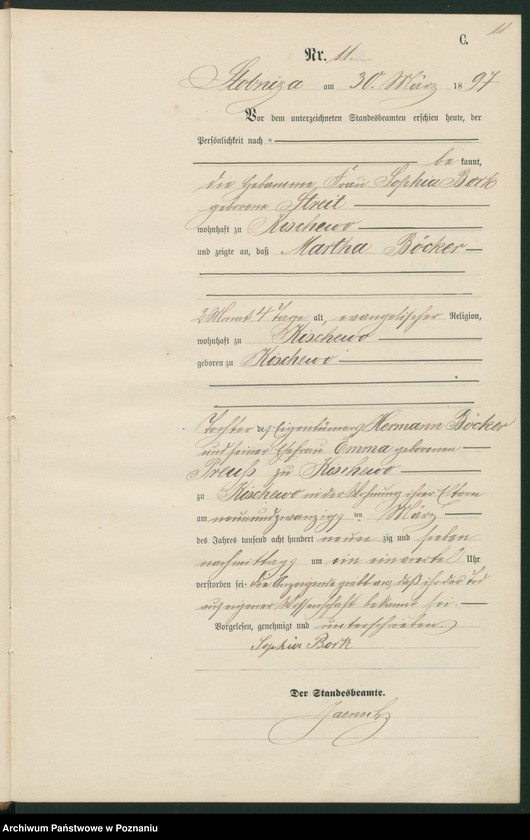 11
C.
Nr. 11
Slobniza am 30. März 1897
Vor dem unterzeichneten Standesbeamten erschien heute, der
Persönlichkeit nach
be kannt,
die Hebamme, Frau Sophia Bork
geborene Streit
wohnhaft zu Kischewo
und zeigte an, daß Martha Böcker
2 Monat 4 Tage alt, evangelischer Religion,
wohnhaft zu Kischewo
geboren zu Kischewo
Tochter des Eigentümers Hermann Böcker
und seiner Ehefrau Emma geborenen
Preuß zu Kischewo
zu Kischewo in der Wohnung ihrer Eltern
am neunundzwanzigsten März
des Jahres tausend acht hundert neun zig und sieben
nachmittags um ein einviertel Uhr
verstorben sei. Die Anzeigende gibt an, daß ihr das Tod
aus eigener Wissenschaft bekannt sei.
Vorgelesen, genehmigt und unterschrieben
Sophia Bork
Der Standesbeamte.
Jaensch
Archiwum Państwowe w Poznaniu